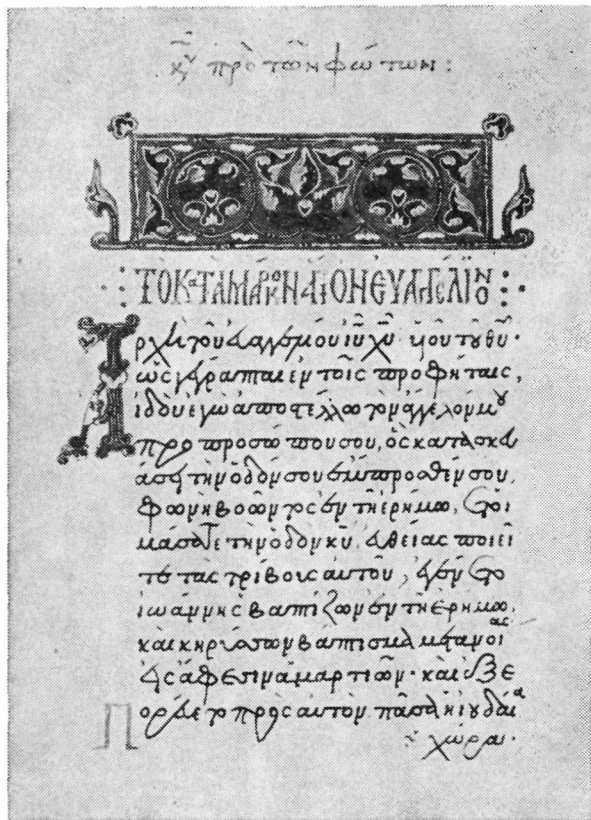 κυ πρὸ τῶν φώτων:
ΤΟ ΚΑΤΑ ΜΑΡΚΟΝ ΑΓΙΟΝ ΕΥΑΓΓΕΛΙΟΝ
Ἀρχὴ τοῦ εὐαγγελίου ιυ χυ υἱοῦ τοῦ θυ·
ὡς γέγραπται ἐν τοῖς προφήταις,
ἰδοὺ ἐγὼ ἀποστέλλω τὸν ἄγγελόν μου
πρὸ προσώπου σου, ὃς κατασκευ
άσει τὴν ὁδόν σου ἔμπροσθέν σου,
φωνὴ βοῶντος ἐν τῇ ἐρήμω, ἑτοι
μάσατε τὴν ὁδὸν κυ, εὐθείας ποιεῖ
τε τὰς τρίβους αὐτοῦ, ἐγένετο
ἰωάννης βαπτίζων ἐν τῇ ἐρήμω,
καὶ κηρύσσων βάπτισμα μετανοίας
εἰς ἄφεσιν ἁμαρτιῶν· καὶ ἐξε
Πορεύετο πρὸς αὐτὸν πᾶσα ἡ ἰουδαία
χώρα·